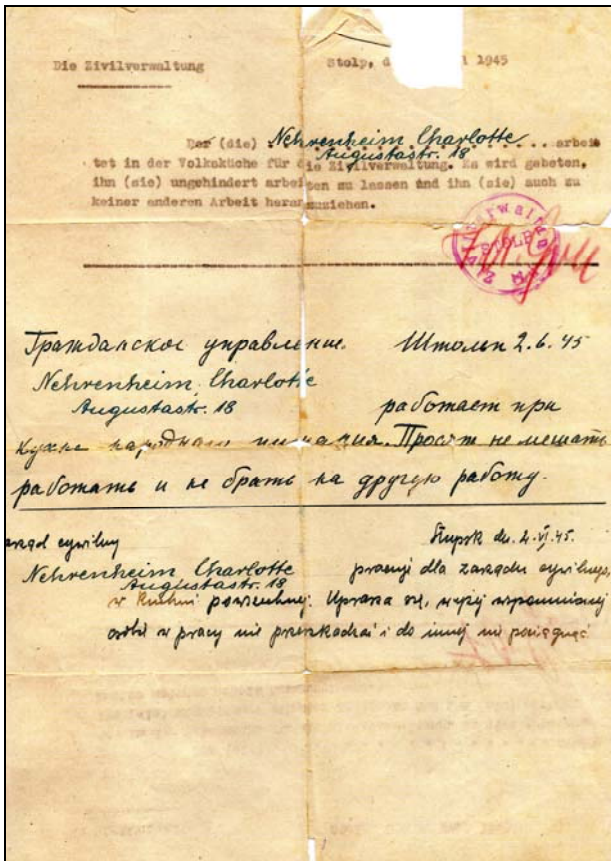 Die Zivilverwaltung Stolp, d 1945
Der (die) Nehrenheim Charlotte ... arbei
Augustastr. 18
tet in der Volksküche für die Zivilverwaltung. Es wird gebeten,
ihn (sie) ungehindert arbeiten zu lassen und ihn (sie) auch zu
keiner anderen Arbeit heranzuziehen.
STOLP
Гражданское управление. Штольп 2.6.45
Nehrenheim, Charlotte
Augustastr. 18 работает при
Кухне народного питания. Просят не мешать
работать и не брать на другую работу.
arząd cywilny Słupsk dn. 2.VI.45.
Nehrenheim Charlotte pracuje dla zarządu cywilnego,
Augustastr. 18
w kuchni powszechnej. Uprasza się, wyżej wspomnianej
osobie w pracy nie przeszkadzać i do innej nie pociągnąć